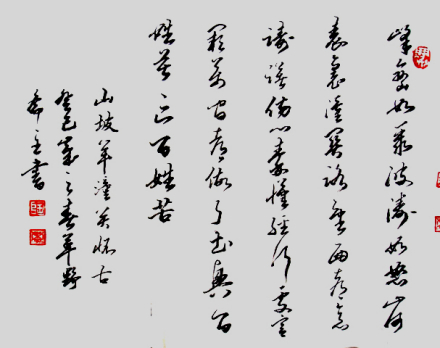 峰峦如聚波涛如怒山河
表里潼关路望西都意
踌躇伤心秦汉经行处宫
阙万间都做了土兴百
姓苦亡百姓苦
山坡羊潼关怀古
癸巳岁之春草野
书